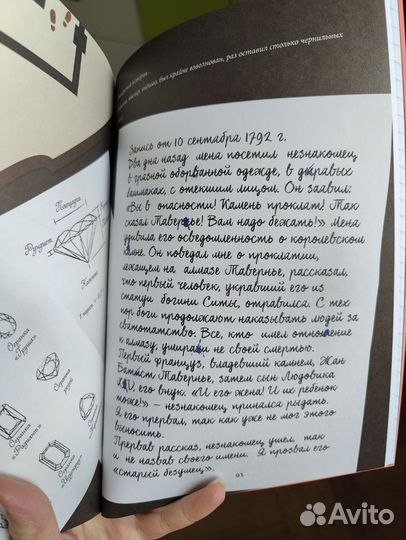 был крайне взволнован, раз оставил столько чернильных
Запись от 10 сентября 1792 г.
Два дня назад меня посетил незнакомец
в грязной оборванной одежде, в дырявых
башмаках, с отекшим лицом. Он заявил:
«Вы в опасности! Камень проклят! Так
сказал Тавернье! Вам надо бежать!» Меня
удивила его осведомленность о королевском
камне. Он поведал мне о проклятии,
лежащем на алмазе Тавернье, рассказал,
что первый человек, укравший его из
статуи богини Ситы, отравился. С тех
пор боги продолжают наказывать людей за
святотатство. Все, кто имел отношение
к алмазу, умирали не своей смертью.
Первый француз, владевший камнем, Жан
Батист Тавернье, затем сын Людовика
XIV, его внук. «И его жена! И их ребенок
тоже!» – незнакомец принялся рыдать.
Я его прервал, так как уже не мог этого
выносить.
Прервав рассказ, незнакомец ушел, так
и не назвав своего имени. Я прозвал его
«старый безумец».
Площадка
Рундист
Огранка
Огранка
Огранка
Avito